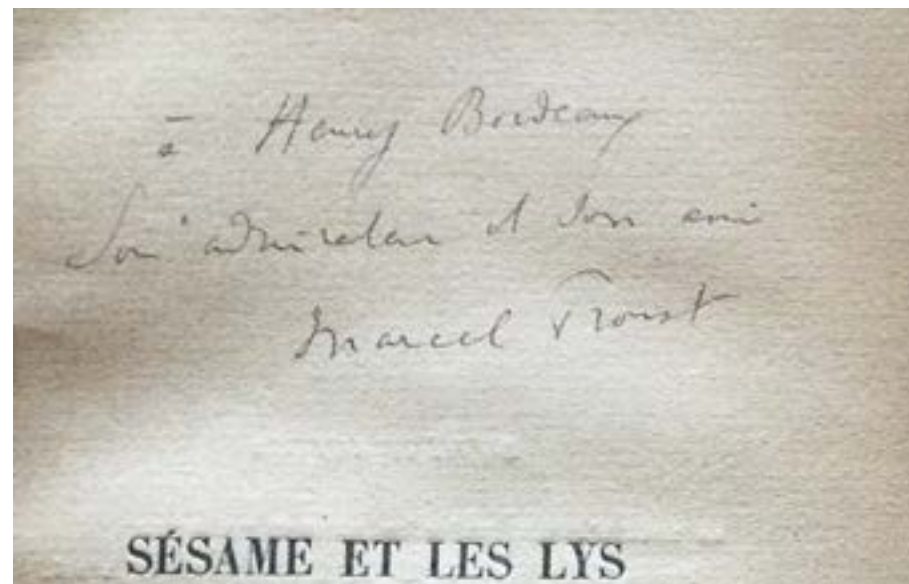 à Henry Bordeaux
Son admirateur et son ami
Marcel Proust
SÉSAME ET LES LYS